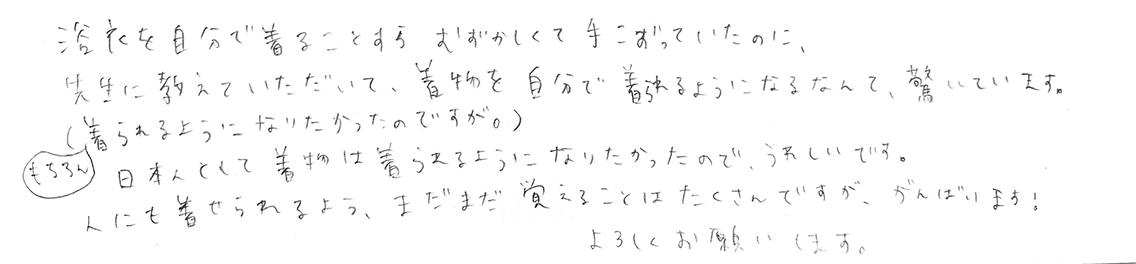 浴衣を自分で着ることすら むずかしくて手こずっていたのに、
先生に教えていただいて、着物を自分で着られるようになるなんて、驚いています。
(着られるようになりたかったのですが。)
もちろん
日本人として着物は着られるようになりたかったので、うれしいです。
人にも着せられるよう、まだまだ覚えることはたくさんですが、がんばります!
よろしくお願いします。